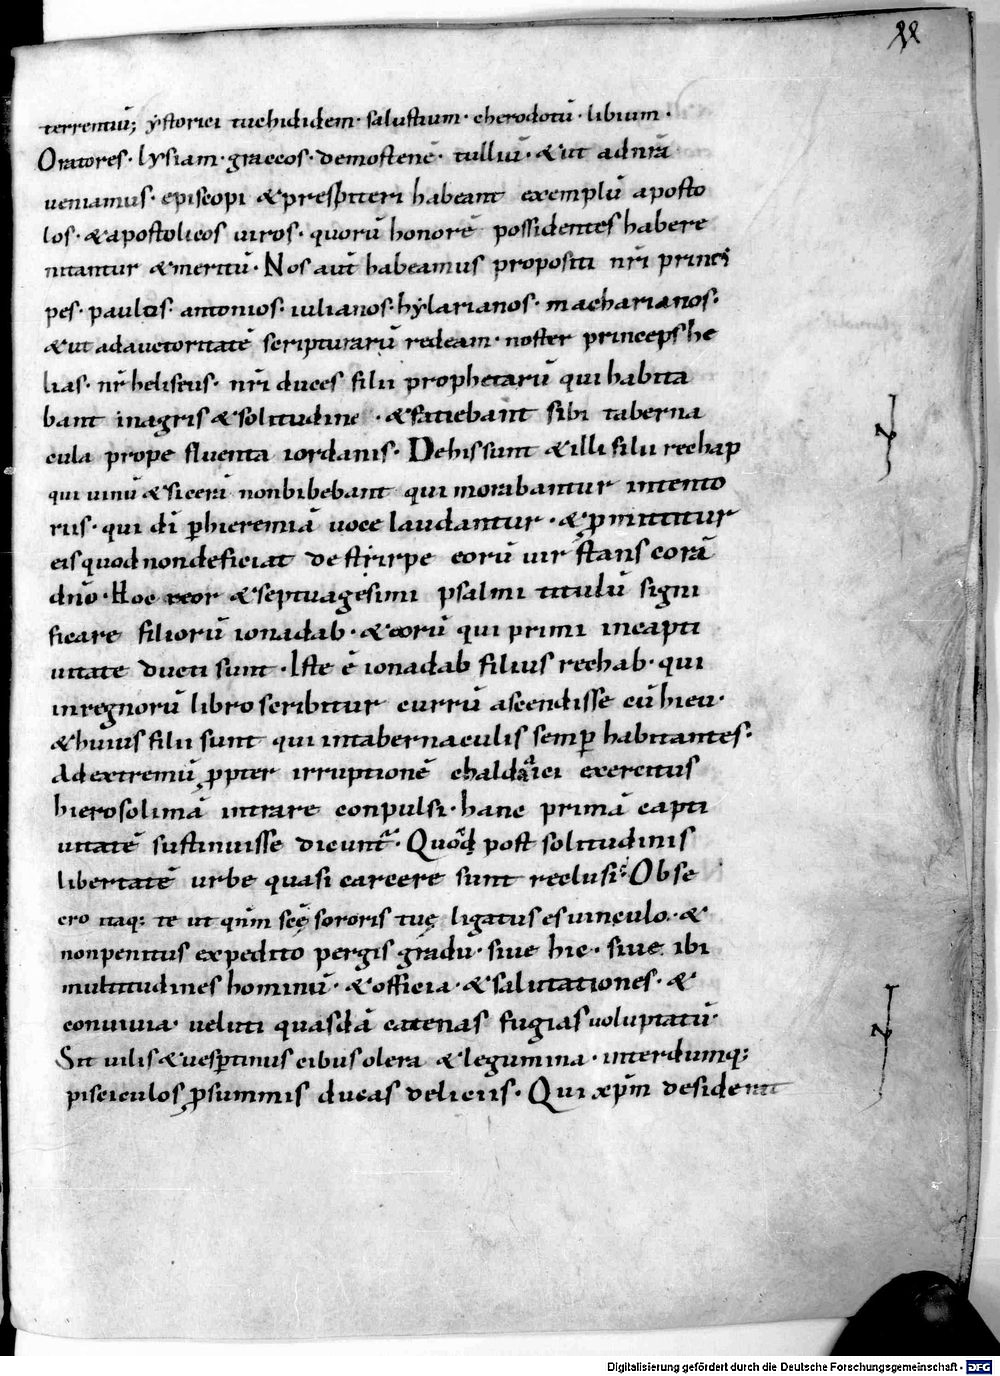 terrentiū; ẏstorici tuchididem· salustium· cherodotū· libium·
Oratores· lysiam· graccos· demostenē· tulliū· &ut adnr̄ā
ueniamus· episcopi &presbiteri habeant exemplū aposto
los· &apostolicos uiros· quorū honorē possidentes habere
nitantur &meritū· Nos aut̄ habeamus propositi nr̄i princi
pes· paulos· antonios· iulianos· hẏlarianos· macharianos·
&ut adauctoritatē scripturarū redeam· noster princeps he
lias· nr̄ heliseus· nr̄i duces filii prophetarū qui habita
bant inagris &solitudine· &fatiebant sibi taberna
cula prope fluenta iordanis· Dehis sunt &illi filii rechap
qui uinū &sicerā nonbibebant qui morabantur intento
riis· qui dī ꝑhieremiā uoce laudantur· &ꝓmittitur
eis quod nondeficiat de stirpe eorū uir stans corā
dn̄o· Hoc reor &septuagesimi psalmi titulū signi
ficare filiorū ionadab· &eorū qui primi incapti
uitate ducti sunt· Iste ē ionadab filius rechab· qui
inregnorū libro scribitur currū ascendisse cū hieu·
&huius filii sunt qui intabernaculis semꝑ habitantes·
Adextremū ꝓpter irruptionē chaldaici exercitus
hierosolimā intrare conpulsi· hanc primā capti
uitatē sustinuisse dicunt̄· Quod post solitudinis
libertatē urbe quasi carcere sunt reclusi· Obse
cro itaq; te ut qm̄ scę sororis tuę ligatus es uinculo· &
nonpenitus expedito pergis gradu· siue hic· siue ibi
multitudines hominū· &officia· &salutationes· &
conuiuia· ueluti quasdā catenas fugias uoluptatū·
Sit uilis &uesꝑtinus cibus olera &legumina· interdumq;
pisciculos ꝓsummis ducas deliciis· Qui xp̄m desiderat
Digitalisierung gefördert durch die Deutsche Forschungsgemeinschaft - DFG